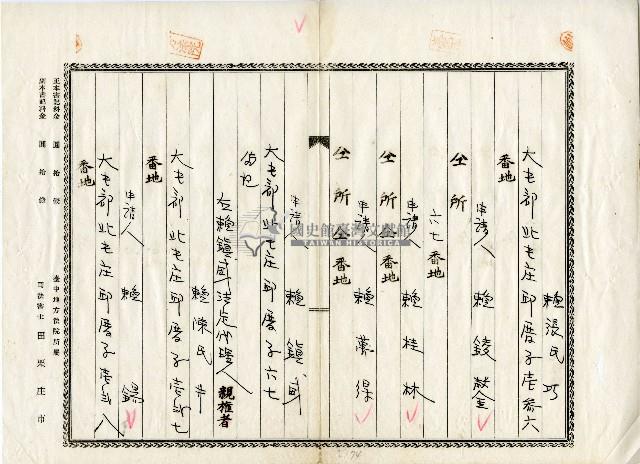 賴張氏巧
大屯郡北屯庄邱厝子壱参六
番地
申請人 賴錂
仝所
六七番地
申請人 賴桂林
仝所仝番地
申請人 賴萬得
仝所仝番地
申請人 賴鎮
大屯郡北屯庄邱厝子六七
番地
右賴鎮 法定代理人 親権者
賴陳氏
大屯郡北屯庄邱厝子壱弐七
番地
申請人 賴錫
大屯郡北屯庄邱厝子壱弐八
番地
臺中地方法院所屬
司法書士 田栗庄市
正本書記料金 圓拾錢
副本書記料金 圓拾錢
國史館臺灣文獻館
TAIWAN HISTORICA